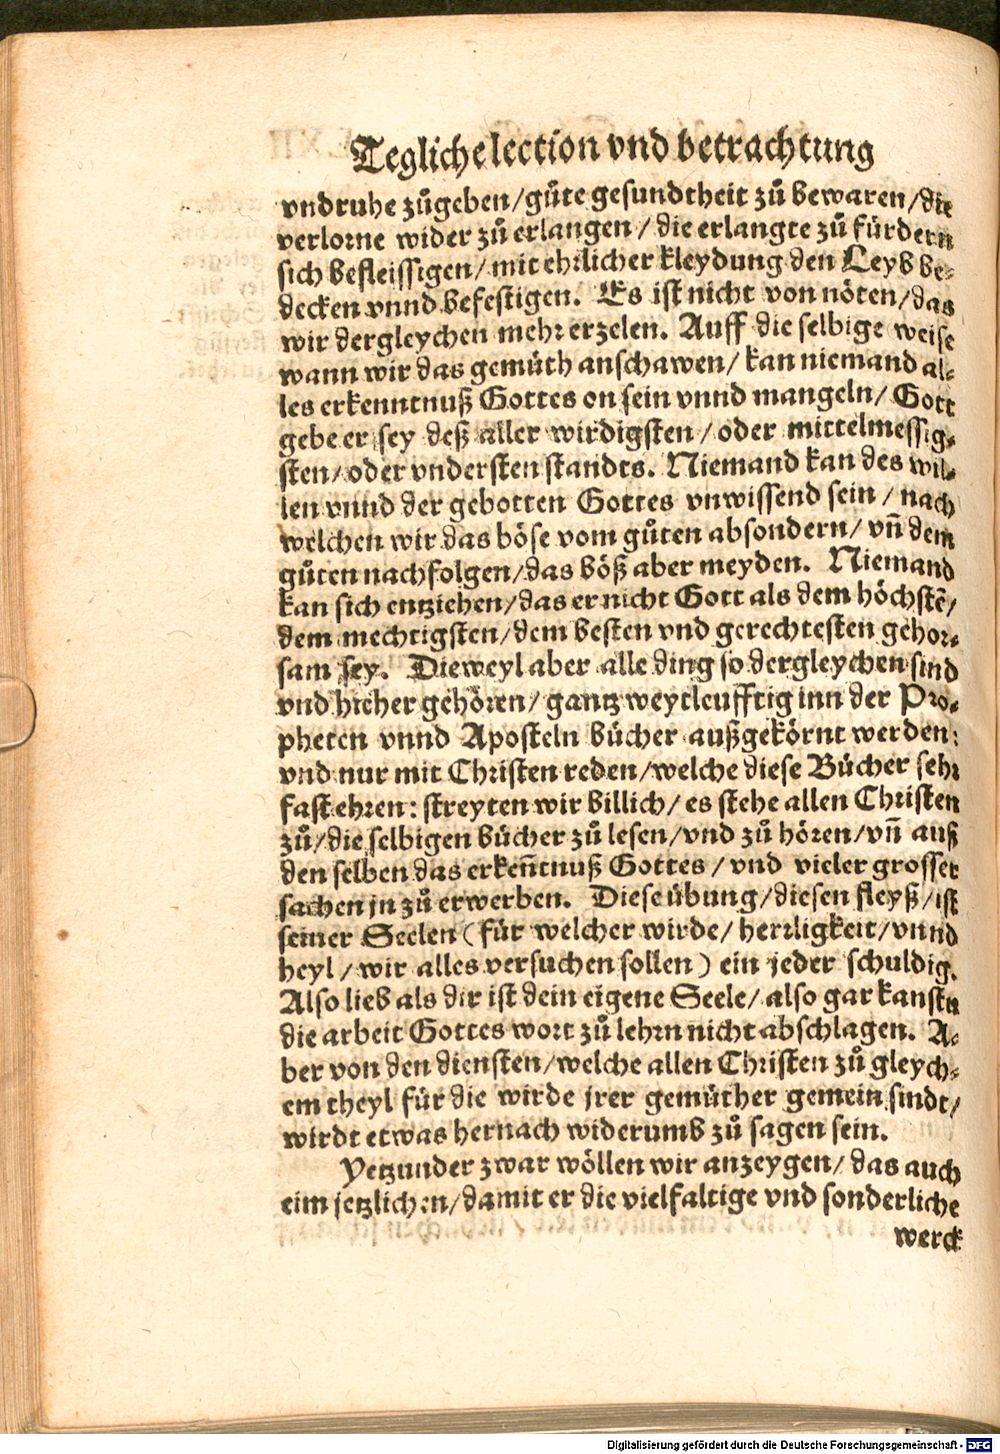 Teglichelection vnd betrachtung
vndruhe zůgeben/gůte gesundtheit zů bewaren/die
verlorne wider zů erlangen / die erlangte zů fürdern
sich befleissigen/ mit ehrlicher kleydung den Leyb be-
decken vnnd befestigen. Es ist nicht von nöten/das
wir dergleychen mehr erzelen. Auff die selbige weise
wann wir das gemüth anschawen/ kan niemand al-
les erkenntnuß Gottes on sein vnnd mangeln/ Gott
gebe er sey deß aller wirdigsten /oder mittelmessig-
sten/oder vndersten standts. Niemand kan des wil-
len vnnd der gebotten Gottes vnwissend sein / nach
welchen wir das böse vom gůten absondern/ vñ dem
gůten nachfolgen/das böß aber meyden. Niemand
kan sich entziehen/das er nicht Gott als dem höchstē/
dem mechtigsten/dem besten vnd gerechtesten gehor-
sam sey. Dieweyl aber alle ding so dergleychen sind
vnd hieher gehören/ gantz weytleufftig inn der Pro-
pheten vnnd Aposteln bücher außgekörnt werden:
vnd nur mit Christen reden/welche diese Bücher sehr
fast ehren: streyten wir billich/ es stehe allen Christen
zů/die selbigen bücher zů lesen/vnd zů hören/vñ auß
den selben das erkeñtnuß Gottes / vnd vieler grosser
sachen jn zů erwerben. Diese übung/diesen fleyß/ist
seiner Seelen (für welcher wirde/ herrligkeit/vnnd
heyl / wir alles versuchen sollen) ein jeder schuldig.
Also lieb als dir ist dein eigene Seele/ also gar kanstu
die arbeit Gottes wort zů lehrn nicht abschlagen. A-
ber von den diensten/welche allen Christen zů gleych-
em theyl für die wirde jrer gemüther gemein sindt/
wirdt etwas hernach widerumb zů sagen sein.
Yetzunder zwar wöllen wir anzeygen/ das auch
eim jetzlichen/damit er die vielfaltige vnd sonderliche
werck
Digitalisierung gefördert durch die Deutsche Forschungsgemeinschaft - DFG